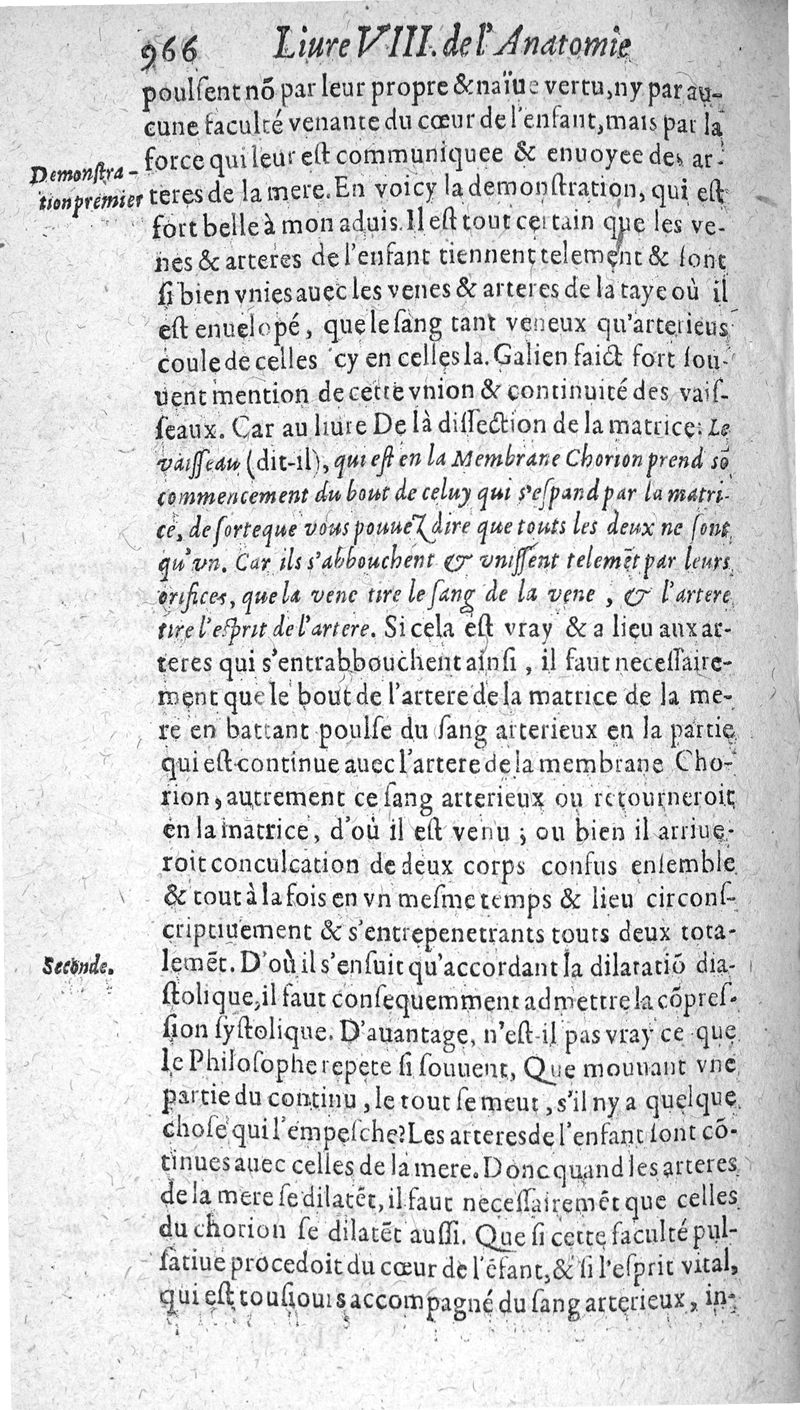 966 Liure VIII. de l'Anatomie
poulſent nō par leur propre & naïue vertu, ny par au-
cune faculté venante du cœur de l'enfant, mais par la
Demonſtra-
tion premier
force qui leur eſt communiquee & enuoyee des ar-
teres de la mere. En voicy la demonſtration, qui eſt
fort belle à mon aduis. Il eſt tout certain que les ve-
nes & arteres de l'enfant tiennent telement & ſont
ſi bien vnies auec les venes & arteres de la taye où il
eſt enuelopé, que le ſang tant veneux qu'arterieus
coule de celles cy en celles la. Galien faict fort ſou-
uent mention de cette vnion & continuité des vaiſ-
ſeaux. Car au liure De là diſſection de la matrice: Le
vaiſſeau (dit-il), qui eſt en la Membrane Chorion prend sō
commencement du bout de celuy qui s'eſpand par la matri-
ce, de ſorte que vous pouuez dire que touts les deux ne ſont
qu'vn. Car ils s'abbouchent & vniſſent telemēt par leurs
orifices, que la vene tire le ſang de la vene, & l'artere
tire l'eſprit de l'artere. Si cela eſt vray & a lieu aux ar-
teres qui s'entrabbouchent ainſi, il faut neceſſaire-
ment que le bout de l'artere de la matrice de la me-
re en battant poulſe du ſang arterieux en la partie
qui eſt continue auec l'artere de la membrane Cho-
rion, autrement ce ſang arterieux ou retourneroit
en la matrice, d'où il eſt venu ; ou bien il arriue-
roit conculcation de deux corps confus enſemble
& tout à la fois en vn meſme temps & lieu circonſ-
criptiuement & s'entrepenetrants touts deux tota-
Seconde.
lemēt. D'où il s'enſuit qu'accordant la dilatatiō dia-
ſtolique, il faut conſequemment admettre la cōpreſ-
ſion ſyſtolique. D'auantage, n'eſt-il pas vray ce que
le Philoſophe repete ſi ſouuent, Que mouuant vne
partie du continu, le tout ſe meut, s'il ny a quelque
choſe qui l'empeſche? Les arteres de l'enfant ſont cō-
tinues auec celles de la mere. Donc quand les arteres
de la mere ſe dilatēt, il faut neceſſairemēt que celles
du chorion ſe dilatēt auſſi. Que ſi cette faculté pul-
ſatiue procedoit du cœur de l'ēfant, & ſi l'eſprit vital,
qui eſt touſiours accompagné du ſang arterieux, in-